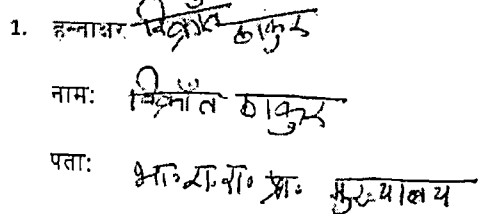 1. हस्ताक्षर विक्रांत ठाकुर
नाम: विक्राँत ठाकुर
पता: भा॰रा॰रा॰ प्रा॰ मुख्यालय